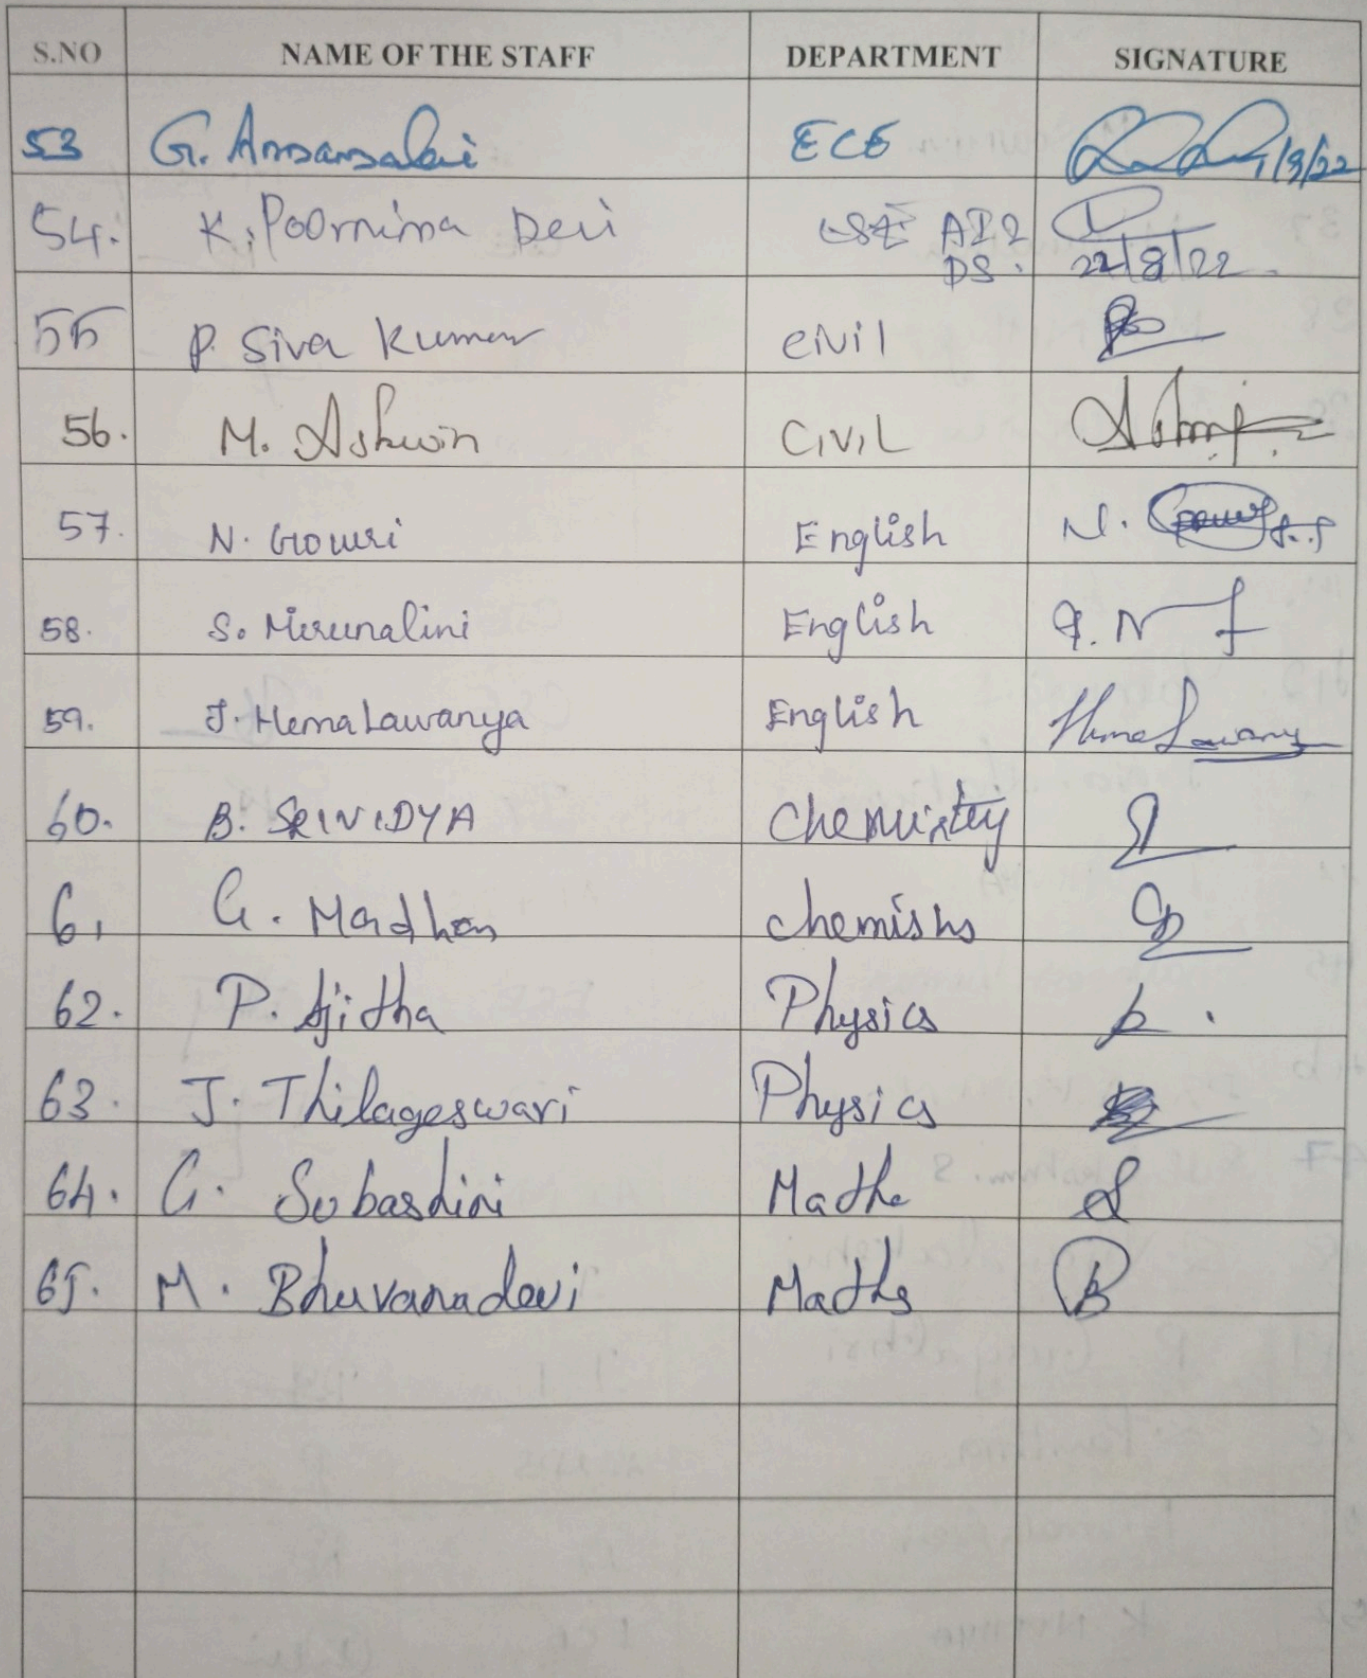 S.NO NAME OF THE STAFF DEPARTMENT SIGNATURE
53 G. ECE /22
54. K. Poornima Devi AI&
DS. 22/8/22.
55 P. Siva Kumar Civil
56. M. Ashwin CIVIL
57. N. Gowri English N.
58. S. Mirunalini English
59. J. Hema Lawanya English Hema Lawany
60. B. SRIVIDYA Chemistry
61 G. Madhan chemistry
62. P. Ajitha Physics
63. J. Thilageswari Physics
64. G. Subashini Maths
65. M. Bhuvanadevi Maths B